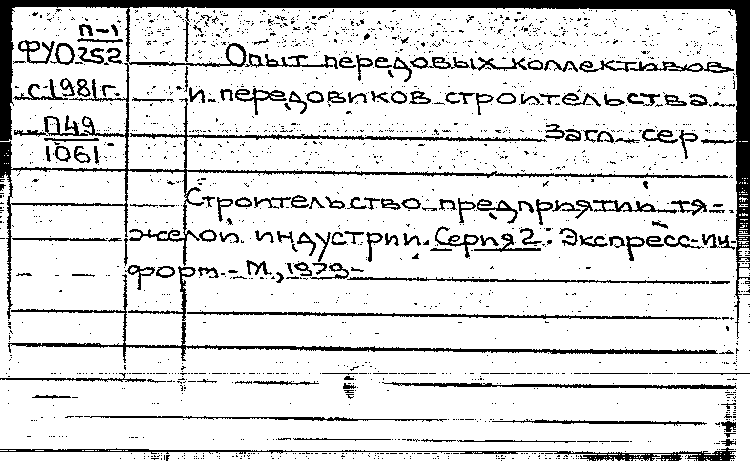 П-1
ФУ0252
с 1981г.
П49
1061
Опыт передовых коллективов
и передовиков строительства.
Загл. сер
Строительство предприятий тя-
желой индустрии. Серия 2: Экспресс-ин-
форм.- М., 1979-